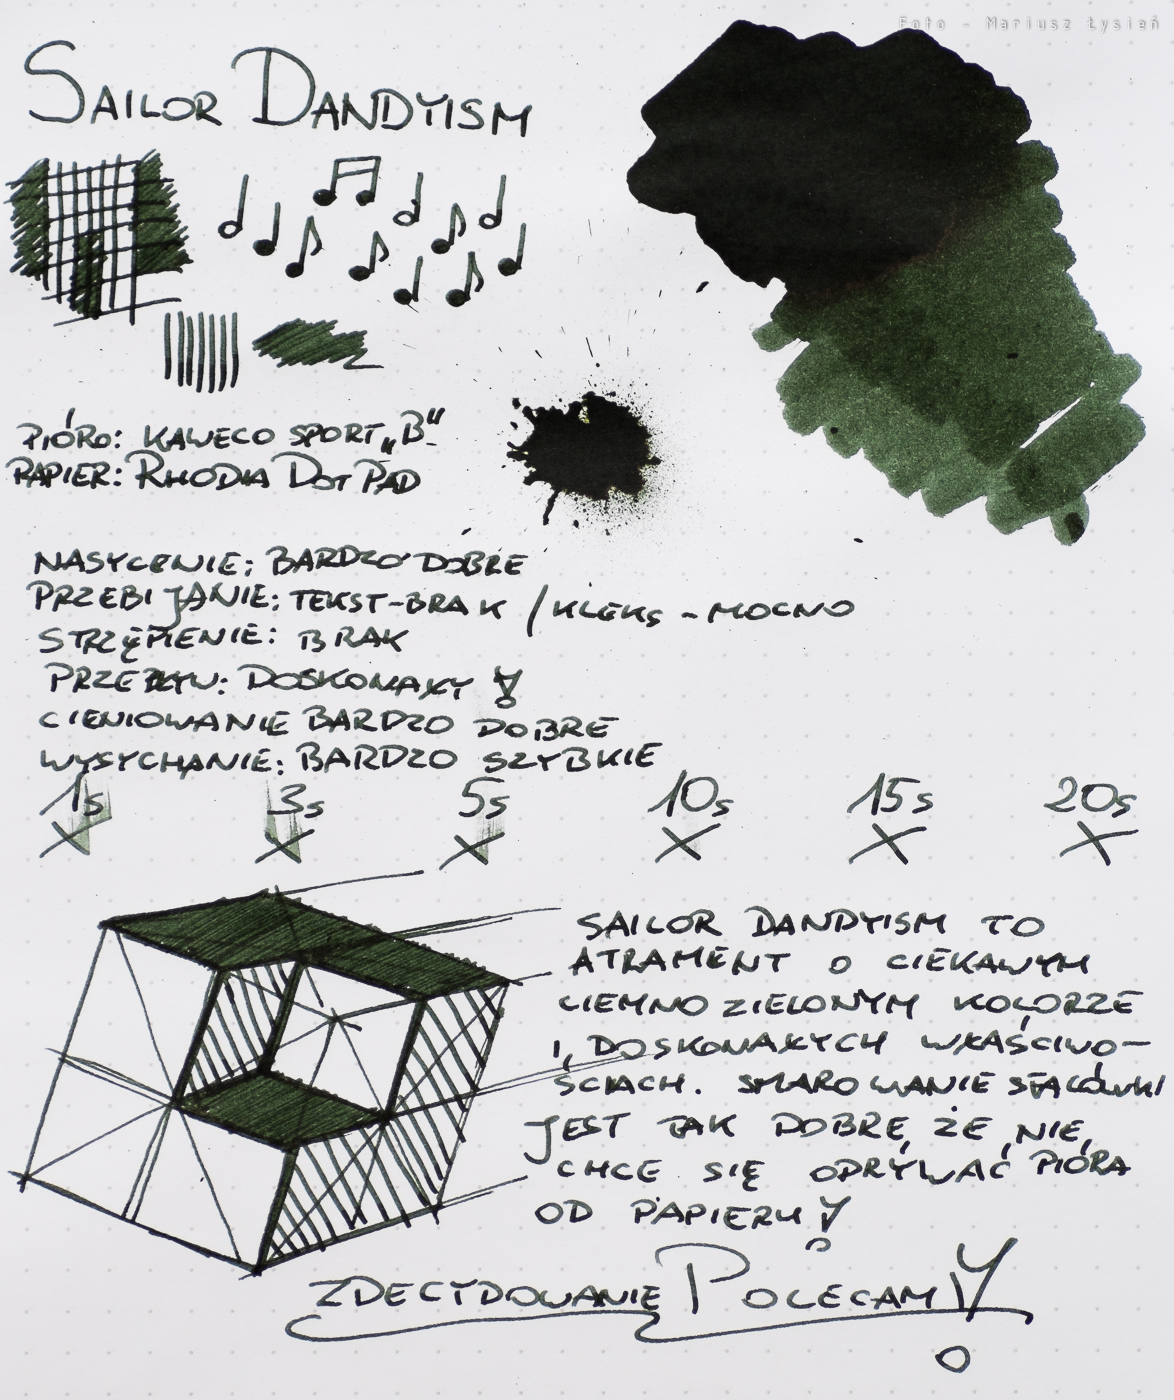 Foto - Mariusz Łysień
SAILOR DANDYISM
PIÓRO: KAWECO SPORT „B"
PAPIER: RHODIA DOT PAD
NASYCENIE: BARDZO DOBRE
PRZEBIJANIE: TEKST-BRAK / KLEKS - MOCNO
STRZĘPIENIE: BRAK
PRZEPŁYW: DOSKONAŁY!
CIENIOWANIE BARDZO DOBRE
WYSYCHANIE: BARDZO SZYBKIE
1s 3s 5s 10s 15s 20s
SAILOR DANDYISM TO
ATRAMENT O CIEKAWYM
CIEMNO ZIELONYM KOLORZE
I DOSKONAŁYCH WŁAŚCIWO-
ŚCIACH. SMAROWANIE STALÓWKI
JEST TAK DOBRE, ŻE NIE
CHCE SIĘ ODRYWAĆ PIÓRA
OD PAPIERU!
ZDECYDOWANIE POLECAM!